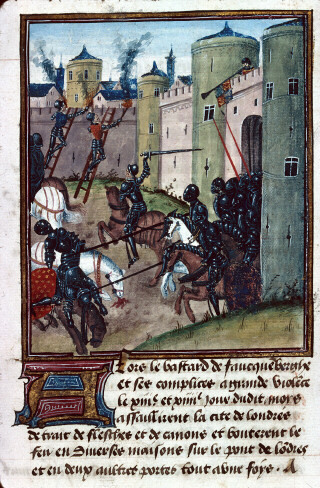 Lors le bastard de faucquëberghe
et ses complices a grande violēce
le xiiie et xiiiie Jour dudit moys
assaillirent la cite de londres
de trait de flesches et de canons et bouterent le
feu en Diverse maisons sur le pont de lōdres
et en deux aultres portes tout a vne foys . A